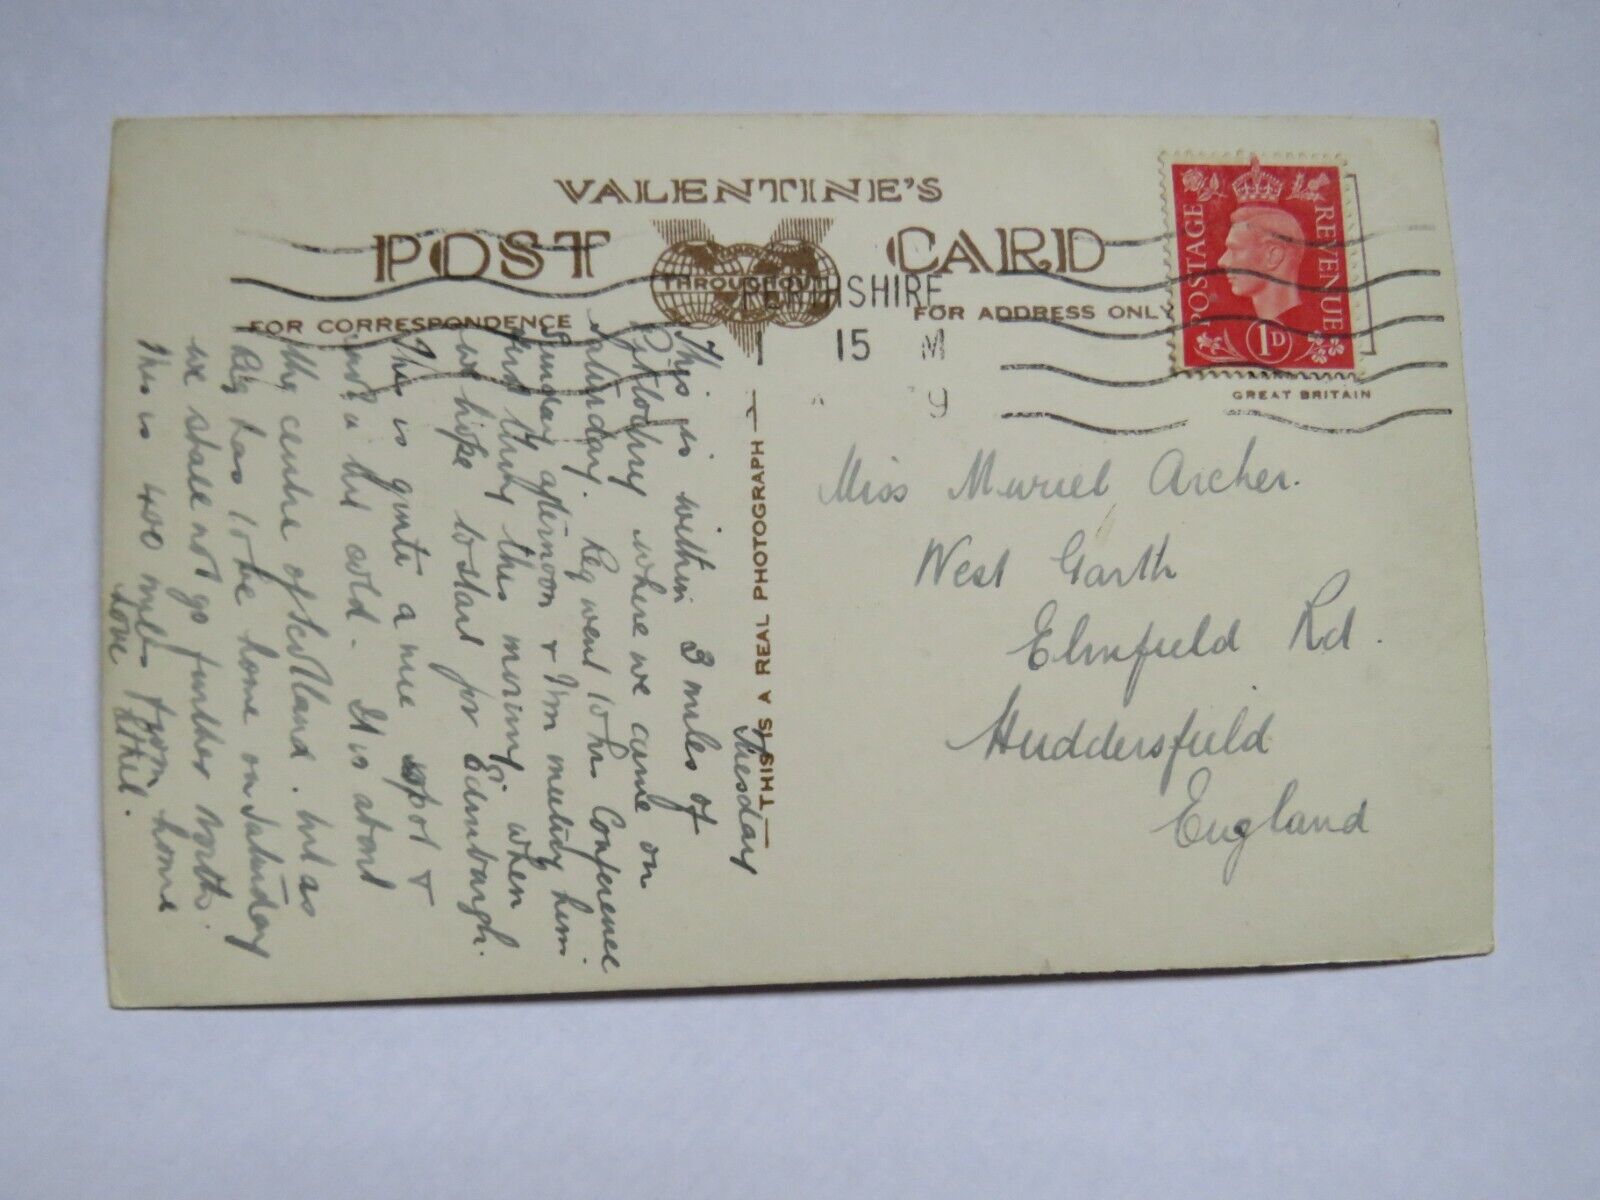 VALENTINE'S
POST CARD
THROUGHOUT
FOR CORRESPONDENCE
FOR ADDRESS ONLY
PERTHSHIRE
15 M
9
POSTAGE
REVENUE
1D
GREAT BRITAIN
THIS IS A REAL PHOTOGRAPH
Tuesday
This is within 3 miles of
Pitlochry where we came on
Saturday. Reg went to his Conference
Sunday afternoon & I'm meeting him
first thing this morning when
we hope to start for Edinburgh.
This is quite a nice spot &
not cold. It is about
the centre of Scotland. but as
Reg has to be home on Saturday
we shall not go further North.
This is 400 miles from home
Love Ethel.
Miss Muriel Archer.
West Garth
Elmfield Rd.
Huddersfield
England